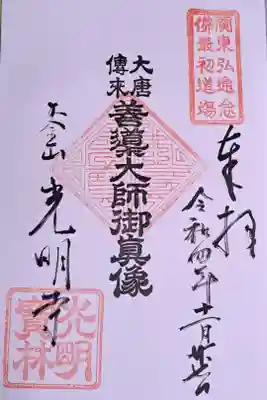 関東弘通念
佛最初道場
奉拝
令和四年十一月
大唐
傳来
善導大師御眞像
大本山
光明寺
光明
寶林